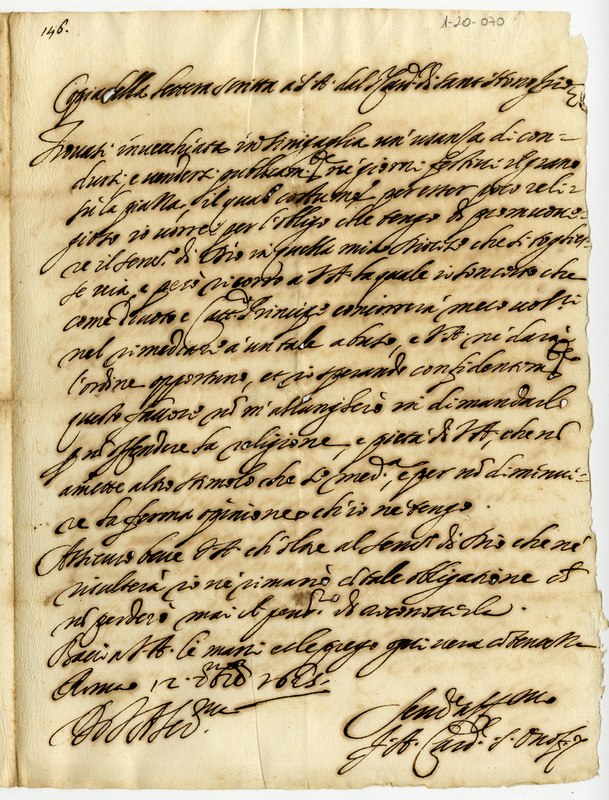 146.
1-20-070
Coppia della lettera scritta a S. A. dal S.r Card.le di Sant'Honofrio
Trovasi invecchiata in Sinigaglia un'usanza di con=
dursi, e vendersi publicam.te ne' giorni festivi il grano
sù la piazza, il qual costume, per esser poco reli=
gioso io vorrei per l'obligo che tengo di promuove=
re il serv.o di Dio in quella mia Diocesi che si toglies=
se via, e però ricorro a V. A. la quale
come divoto e Catt.co Principe concorrerà meco
nel rimediare à un tale abuso, e V. A. ne darà
l'ordine opportuno, et io sperando confidentem.te
questo favore nõ m'allungherò in dimandarlo
p nõ offendere la religione, e pietà di V. A., che nõ
amette altro stimolo che se med.a, e per nõ diminui=
re la ferma opinione ch'io ne tengo.
Assicuro bene V. A. ch'oltre al serv.o di Dio che ne
risulterà io ne rimarrò cõ tale obligatione ch
nõ perderò mai il pens.ro di riconoscerla.
Bacio a V. A. le mani e le prego ogni vera contentezza
Roma 12
Di V. A. Ser.ma
F. A. Card.le S. Onofrio